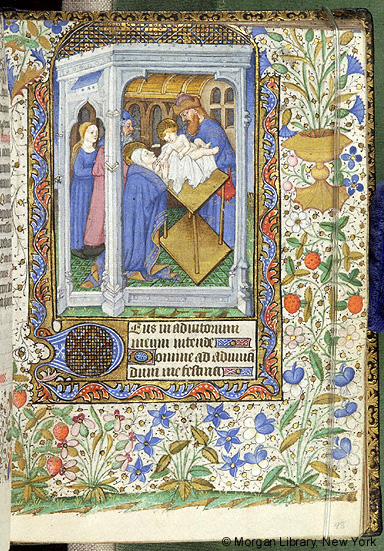 Deus in adiutorium
meum intende
Domine ad adiuua
dum me festina
© Morgan Library, New York